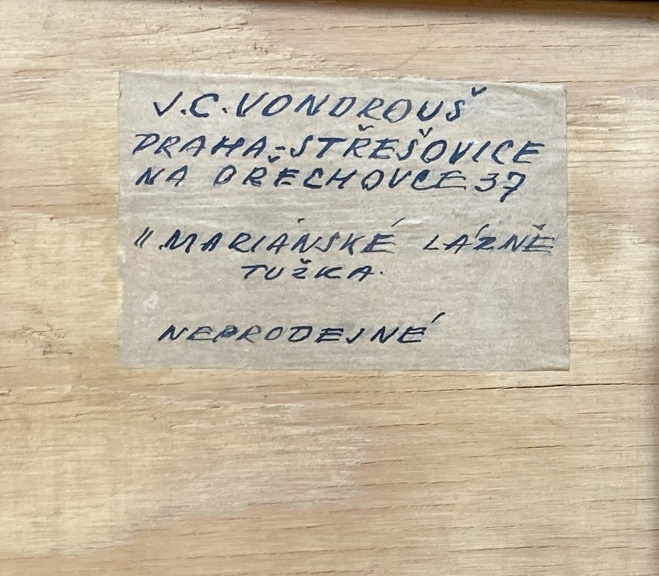 J.C.VONDROUŠ
PRAHA-STŘEŠOVICE
NA OŘECHOVCE 37
"MARIÁNSKÉ LÁZNĚ
TUŽKA.
NEPRODEJNÉ